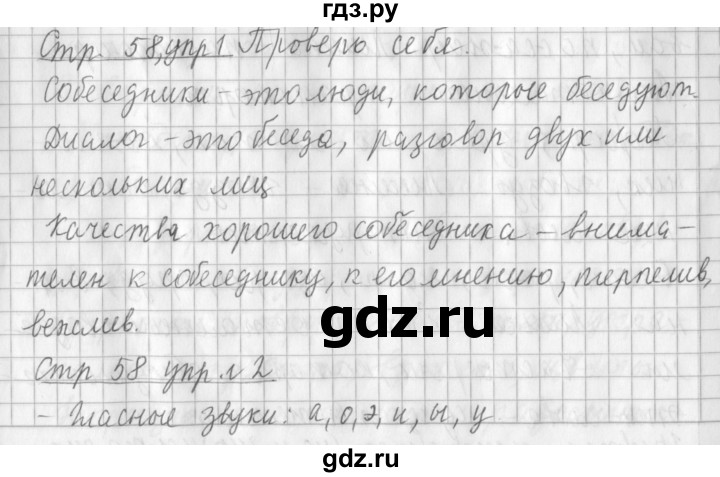 гдз.ру
Стр. 58, упр 1 Проверь себя.
Собеседники – это люди, которые беседуют.
Диалог – это беседа, разговор двух или
нескольких лиц
Качества хорошего собеседника – внима-
телен к собеседнику, к его мнению, терпелив,
вежлив.
gdz.ru
Стр 58 упр. 2
– Гласные звуки: а, о, э, и, ы, у
gdz.ru